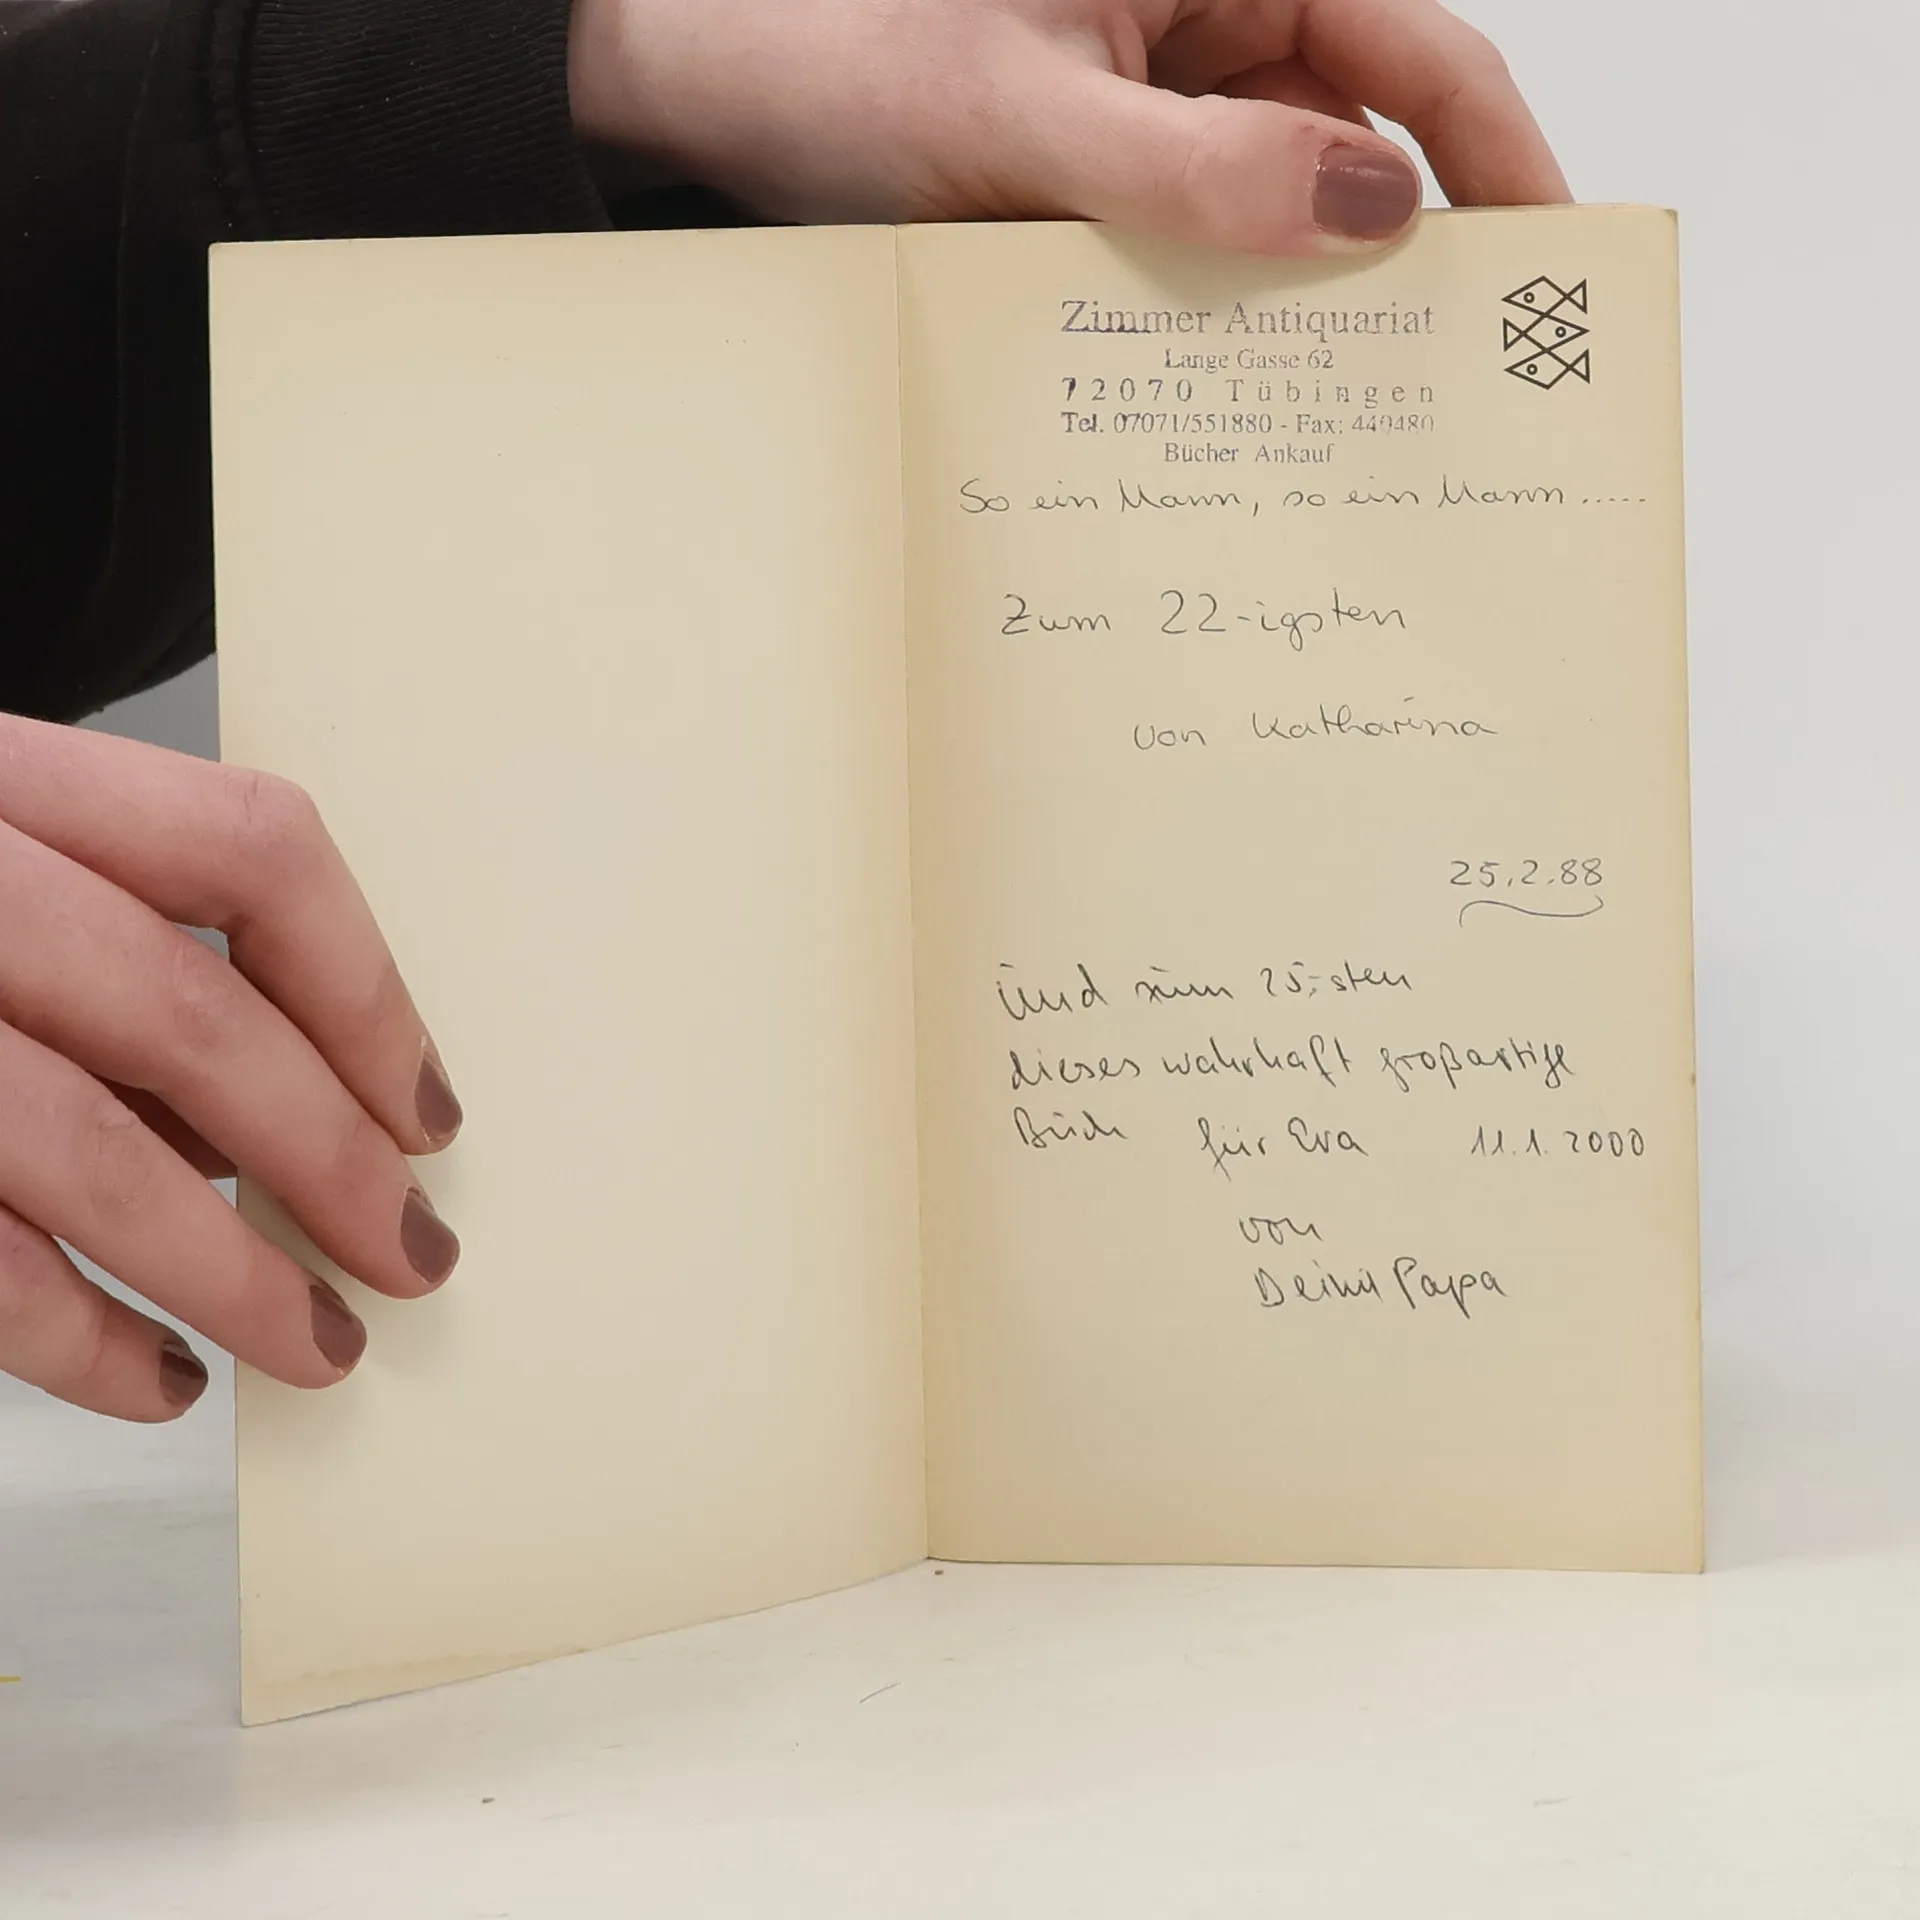 Zimmer Antiquariat
Lange Gasse 62
72070 Tübingen
Tel. 07071/551880 - Fax: 440480
Bücher Ankauf
So ein Mann, so ein Mann.....
Zum 22-igsten
von Katharina
25.2.88
Und zum 25-sten
dieses wahrhaft großartige
Buch für Eva 11.1.2000
von
Deinem Papa